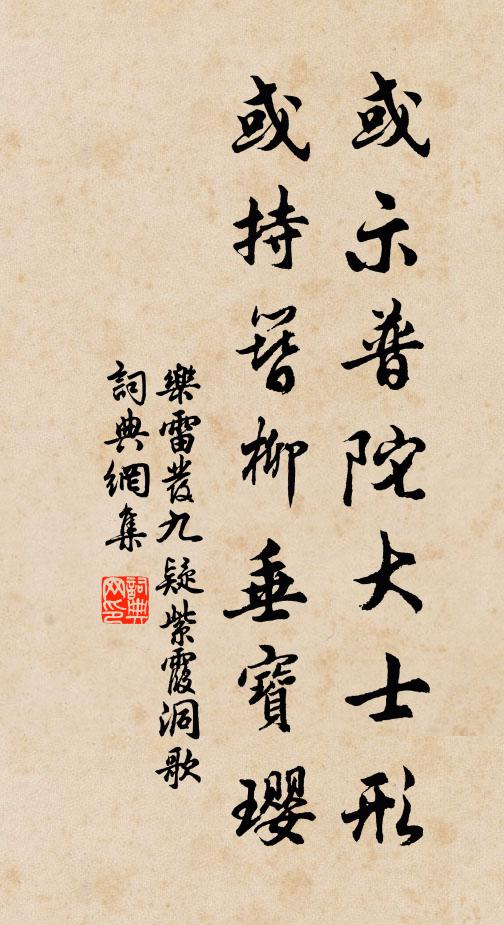 或示普陀大士形
或持簪柳垂寶瓔
樂雷發九疑紫霞洞歌
詞典網集
詞典
网印